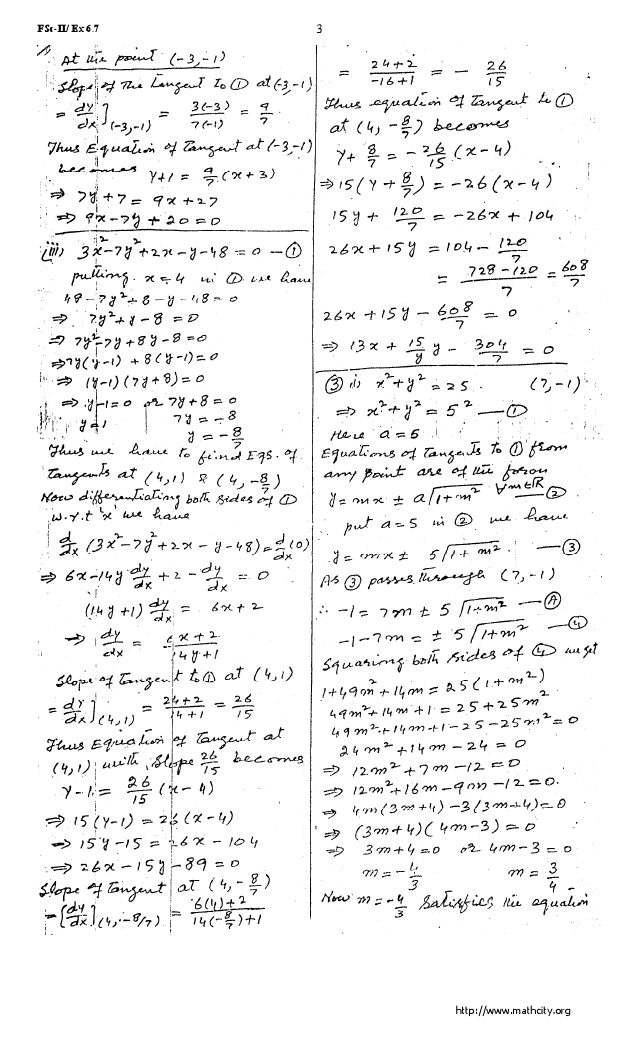 FSc-II/ Ex 6.7
3
At the point (-3,-1)
Slope of the tangent to ① at (-3,-1)
= dy/dx](-3,-1) = 3(-3)/7(-1) = 9/7
Thus Equation of Tangent at (-3,-1)
becomes y+1 = 9/7 (x+3)
⇒ 7y+7 = 9x+27
⇒ 9x-7y+20=0
(iii) 3x²-7y²+2x-y-48=0 — ①
putting x=4 in ① we have
48-7y²+8-y-48=0
⇒ 7y²+y-8=0
⇒ 7y²-7y+8y-8=0
⇒ 7y(y-1)+8(y-1)=0
⇒ (y-1)(7y+8)=0
⇒ y-1=0 or 7y+8=0
y=1 7y=-8
y=-8/7
Thus we have to find Eqs. of
tangents at (4,1) & (4,-8/7)
Now differentiating both sides of ①
w.r.t 'x' we have
d/dx (3x²-7y²+2x-y-48)=d/dx(0)
⇒ 6x-14y dy/dx +2- dy/dx = 0
(14y+1) dy/dx = 6x+2
⇒ dy/dx = 6x+2/14y+1
Slope of tangent to ① at (4,1)
= dy/dx](4,1) = 24+2/14+1 = 26/15
Thus Equation of Tangent at
(4,1) with slope 26/15 becomes
y-1 = 26/15 (x-4)
⇒ 15(y-1) = 26(x-4)
⇒ 15y-15 = 26x-104
⇒ 26x-15y-89=0
Slope of tangent at (4,-8/7)
=[dy/dx](4,-8/7) = 6(4)+2/14(-8/7)+1
= 24+2/-16+1 = - 26/15
Thus equation of Tangent to ①
at (4,-8/7) becomes
y+ 8/7 = -26/15 (x-4)
⇒ 15(y+8/7) = -26(x-4)
15y+ 120/7 = -26x+104
26x+15y = 104- 120/7
= 728-120/7 = 608/7
26x+15y- 608/7 = 0
⇒ 13x+ 15/y y- 304/7 = 0
③ i) x²+y²=25. (7,-1)
⇒ x²+y²=5² — ①
Here a=5
Equations of Tangents to ① from
any point are of the form
y=mx ± a√1+m² ∀m∈R — ②
put a=5 in ② we have
y=mx± 5√1+m². — ③
As ③ passes through (7,-1)
∴ -1=7m ± 5√1+m² — Ⓐ
-1-7m=±5√1+m² — ④
Squaring both sides of ④ we get
1+49m²+14m=25(1+m²)
49m²+14m+1=25+25m²
49m²+14m+1-25-25m²=0
24m²+14m-24=0
⇒ 12m²+7m-12=0
⇒ 12m²+16m-9m-12=0.
⇒ 4m(3m+4)-3(3m+4)=0
⇒ (3m+4)(4m-3)=0
⇒ 3m+4=0 or 4m-3=0
m=-4/3 m=3/4
Now m=-4/3 satisfies the equation
http://www.mathcity.org